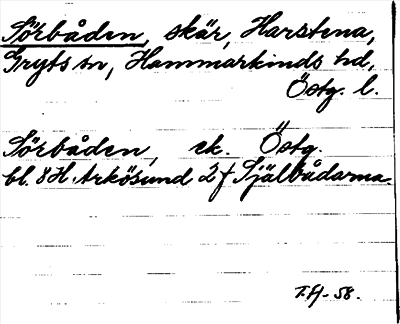 Sörbåden, skär, Harstena,
Gryts sn, Hammarkinds hd,
Östg. l.
Sörbåden, ek. Östg.
bl. 8 H. Arkösund 2 f Själbådarna.
T. H-58.